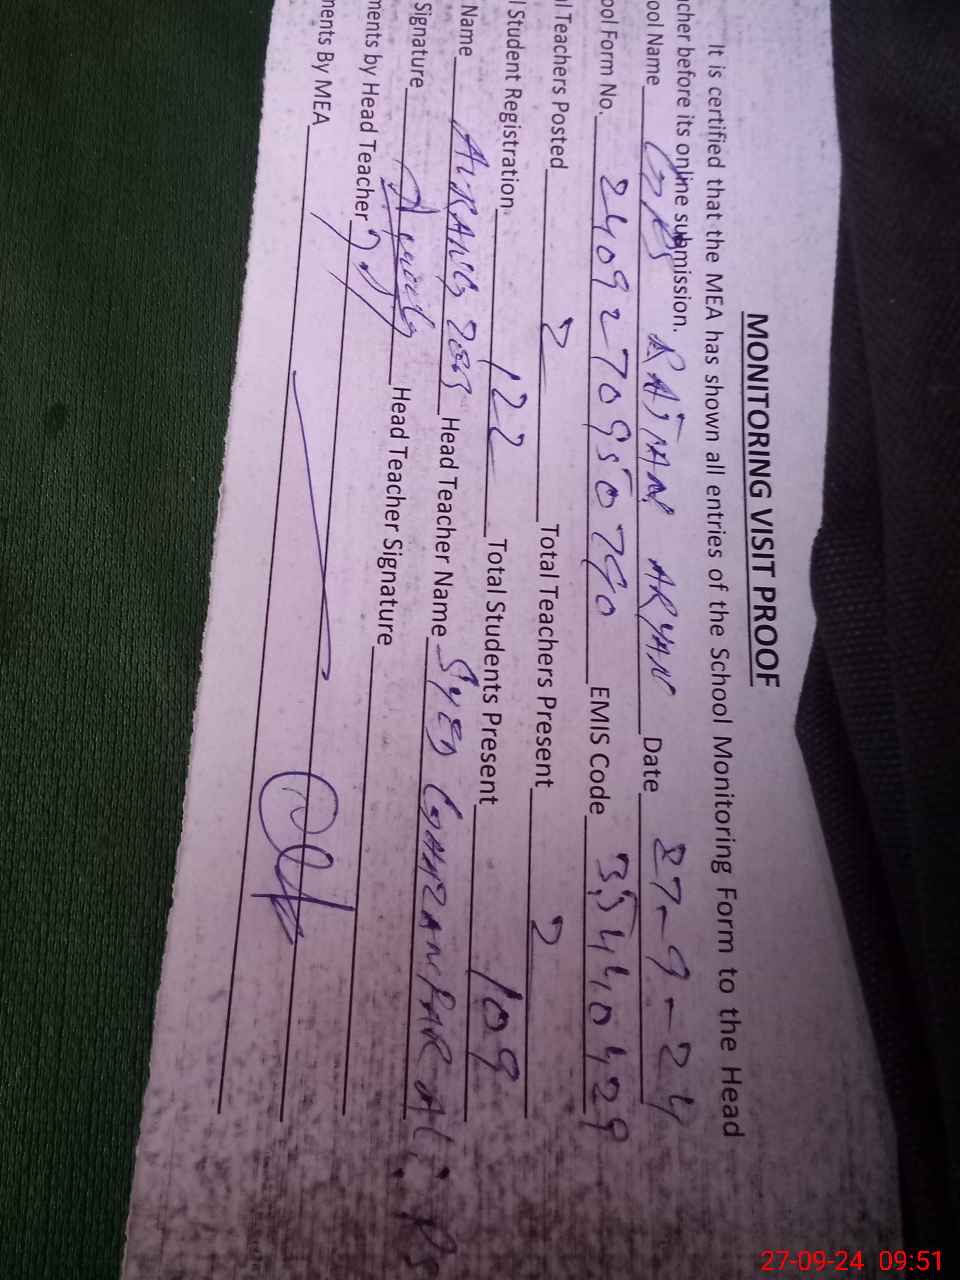 MONITORING VISIT PROOF
It is certified that the MEA has shown all entries of the School Monitoring Form to the Head
cher before its online submission.
ool Name GPS RAJMAN ARYAN Date 27-9-24
ool Form No. 2409270950790 EMIS Code 35440429
l Teachers Posted 2 Total Teachers Present 2
l Student Registration 122 Total Students Present 109
Name AURANG ZEB Head Teacher Name SYED GHAZANFAR ALI
Signature Head Teacher Signature
ments by Head Teacher
ments By MEA
27-09-24 09:51